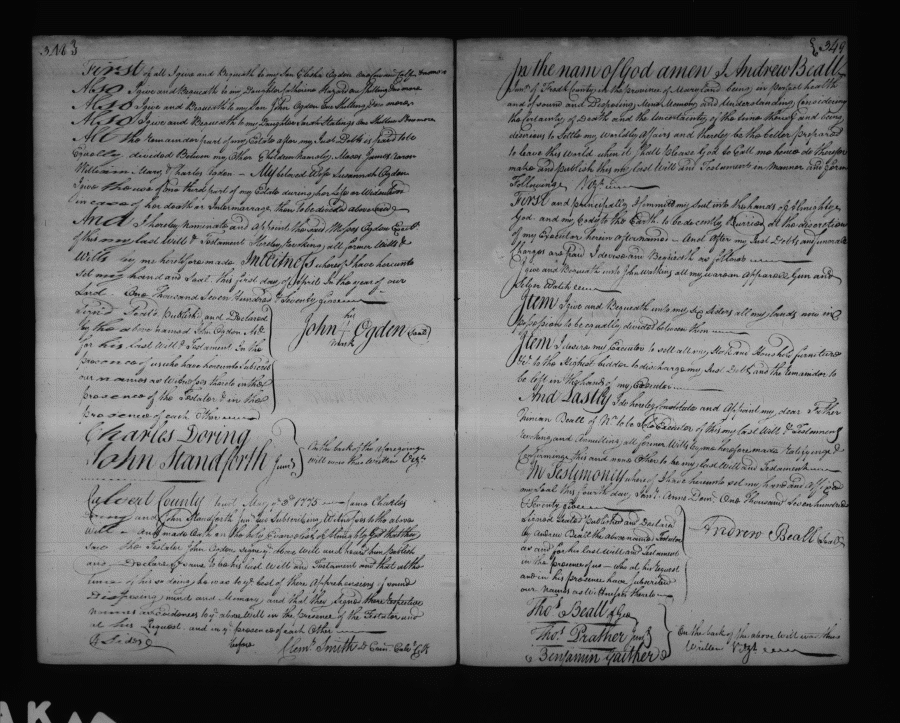 First of all I give and Bequeath to my Son Elisha Ogden one Shilling
Also I give and Bequeath to my Daughter Catherine one Shilling & no more
Also I give and Bequeath to my Son John Ogden one Shilling & no more
Also I give and Bequeath to my Daughter Sarah Hastings one Shilling & no more
All the remainder part of my Estate after my Just Debts is paid to be
Equally divided Between my Other Children Namely Moses James
William Mary & Charles Ogden My beloved Wife Susannah Ogden
the use of one third part of my Estate during her life or Widowhood
in case of her death or Intermarriage then to be divided above said
And I hereby nominate and appoint the said Moses Ogden
of this my last Will & Testament Hereby revoking all former Wills &
Wills by me heretofore made In Witness whereof I have hereunto
Set my hand and Seal this first day of April In the year of our
Lord One Thousand Seven Hundred & Seventy five
Signed Seal'd Publish'd and Declared
by the above named John Ogden
for his last Will & Testament In the
presence of us who have hereunto Subscribed
our names as Witnesses thereto in the
presence of the Testator & in the
presence of each other
his
John + Ogden (Seal)
mark
Charles Doring
John Standforth Junr
On the back of the aforegoing
will were thus written Vizt
Calvert County May 1775 came Charles
Doring and John Standforth Junr two Subscribing Witnesses to the above
Will and made Oath on the Holy Evangelists of Almighty God that they
saw the Testator John Ogden Signe the above Will and heard him Publish
and Declare the same to be his last Will and Testament and that at the
time of his so doing he was to the best of there Apprehensions of sound
Disposing mind and Memory and that they Signed there respective
names as Evidences to the above Will in the Presence of the Testator and
at his Request and in the presence of each other
before
Clemt Smith
349
In the nam of God amen I Andrew Beall
Junr of Fredk County in the province of Maryland being in perfect health
and of sound and Disposing Mind Memory and Understanding considering
the certainty of Death and the Uncertainty of the time thereof and being
desirous to Settle my Worldly Affairs and thereby be the better prepared
to leave this World when it Shall Please God to Call me hence do therefore
make and publish this my last Will and Testament in manner and Form
Following
First and principally I Committ my Soul into the hands of Almighty
God and my Body to the Earth to be decently Burried at the discretion
of my Executor herein after named And after my Just Debts and funeral
charges are paid I devise and Bequeath as follows
I give and Bequeath unto all my warean Apparel Gun and
Item I give and Bequeath unto my Sisters all my Lands are in
possession to be equally divided between them
Item I desire my Executor to sell all my Stock and Houshold furniture
&c to the Highest bidder to discharge my Just Debts and the remainder to
be left in the hands of my Executor
And Lastly I do hereby Constitute and Appoint my dear Father
Ninian Beall of Nn to be Sole Executor of this my last Will & Testament
revoking and annulling all former Wills by me heretofore made Ratifying &
confirming this and none other to be my last Will and Testament
In Testimony whereof I have hereunto set my hand and Affixed
my Seal this fourth day Anno Dom One Thousand Seven hundred
& Seventy five
Signed Sealed Published and Declared
by Andrew Beall the above named Testator
as and for his last Will and Testament
in the presence of us who at his request
and in his presence have Subscribed
our names as Witnesses thereto
Andrew Beall (Seal)
Thos Beall of Geo
Thos Prather Junr
Benjamin Gaither
On the back of the above will was thus
Written Vizt